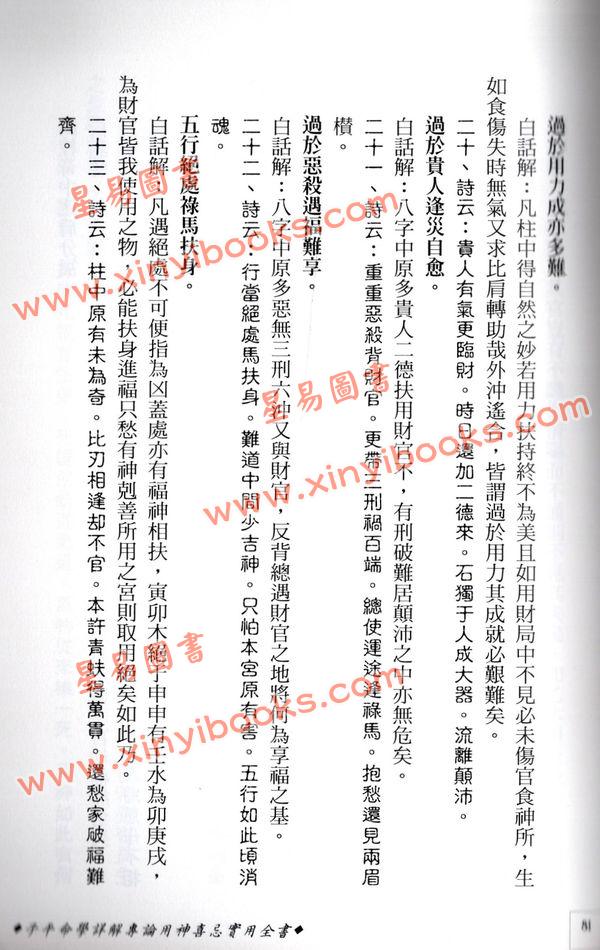 過於用力成亦多難。
白話解：凡柱中得自然之妙若用力扶持終不為美且如用財局中不見必未傷官食神所，生
如食傷失時無氣又求比肩轉助哉外沖遙合，皆謂過於用力其成就必艱難矣。
二十、詩云：貴人有氣更臨財。時日還加二德來。石獨于人成大器。流離顛沛。
過於貴人逢災自愈。
白話解：八字中原多貴人二德扶用財官不，有刑破難居顛沛之中亦無危矣。
二十一、詩云：重重惡殺背財官。更帶三刑禍百端。總使運途逢祿馬。抱愁還見兩眉
攢。
過於惡殺遇福難享。
白話解：八字中原多惡無三刑六沖又與財官，反背總遇財官之地將何為享福之基。
二十二、詩云：行當絕處馬扶身。難道中間少吉神。只怕本宮原有害。五行如此頃消
魂。
五行絕處祿馬扶身。
白話解：凡遇絕處不可便指為凶蓋處亦有福神相扶，寅卯木絕于申申有壬水為卯庚戌，
為財官皆我使用之物。必能扶身進福只愁有神剋善所用之宮則取用絕矣如此乃。
二十三、詩云：柱中原有未為奇。比刃相逢却不官。本許青扶得萬貫。還愁家破福難
齊。
星易圖書
www.xinyibooks.com
星易圖書
www.xinyibooks.com
星易圖書
www.xinyibooks.com
◆子平命學詳解專論用神喜忌實用全書◆
81